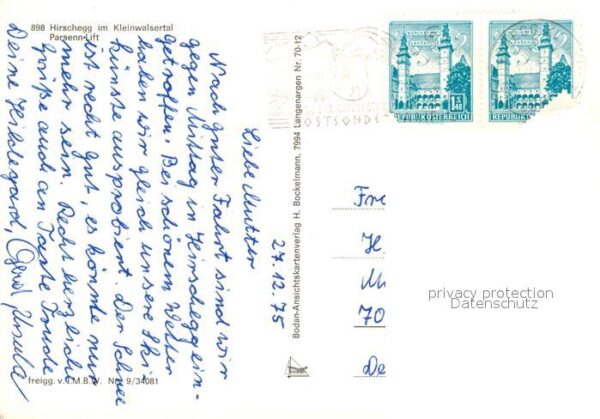 898 Hirschegg im Kleinwalsertal
Parsenn-Lift
27.12.75
Liebe Mutter
Nach guter Fahrt sind wir
gegen Mittag in Hirschegg ein-
getroffen. Bei schönem Wetter
haben wir gleich unsere Ski-
künste ausprobiert. Der Schnee
ist recht gut, es könnte nur
mehr sein. Recht herzliche
Grüße auch an Tante Trude
Deine Hildegard, Gerd, Ursula
freigg. v. I.M.B.W. Nr. 9/34081
Bodan-Ansichtskartenverlag H. Bockelmann, 7994 Langenargen Nr. 70-12
REPUBLIK ÖSTERREICH
S 1.40
REPUBLIK ÖSTER
POSTSONDE
Fre
H.
M
70
De
privacy protection
Datenschutz